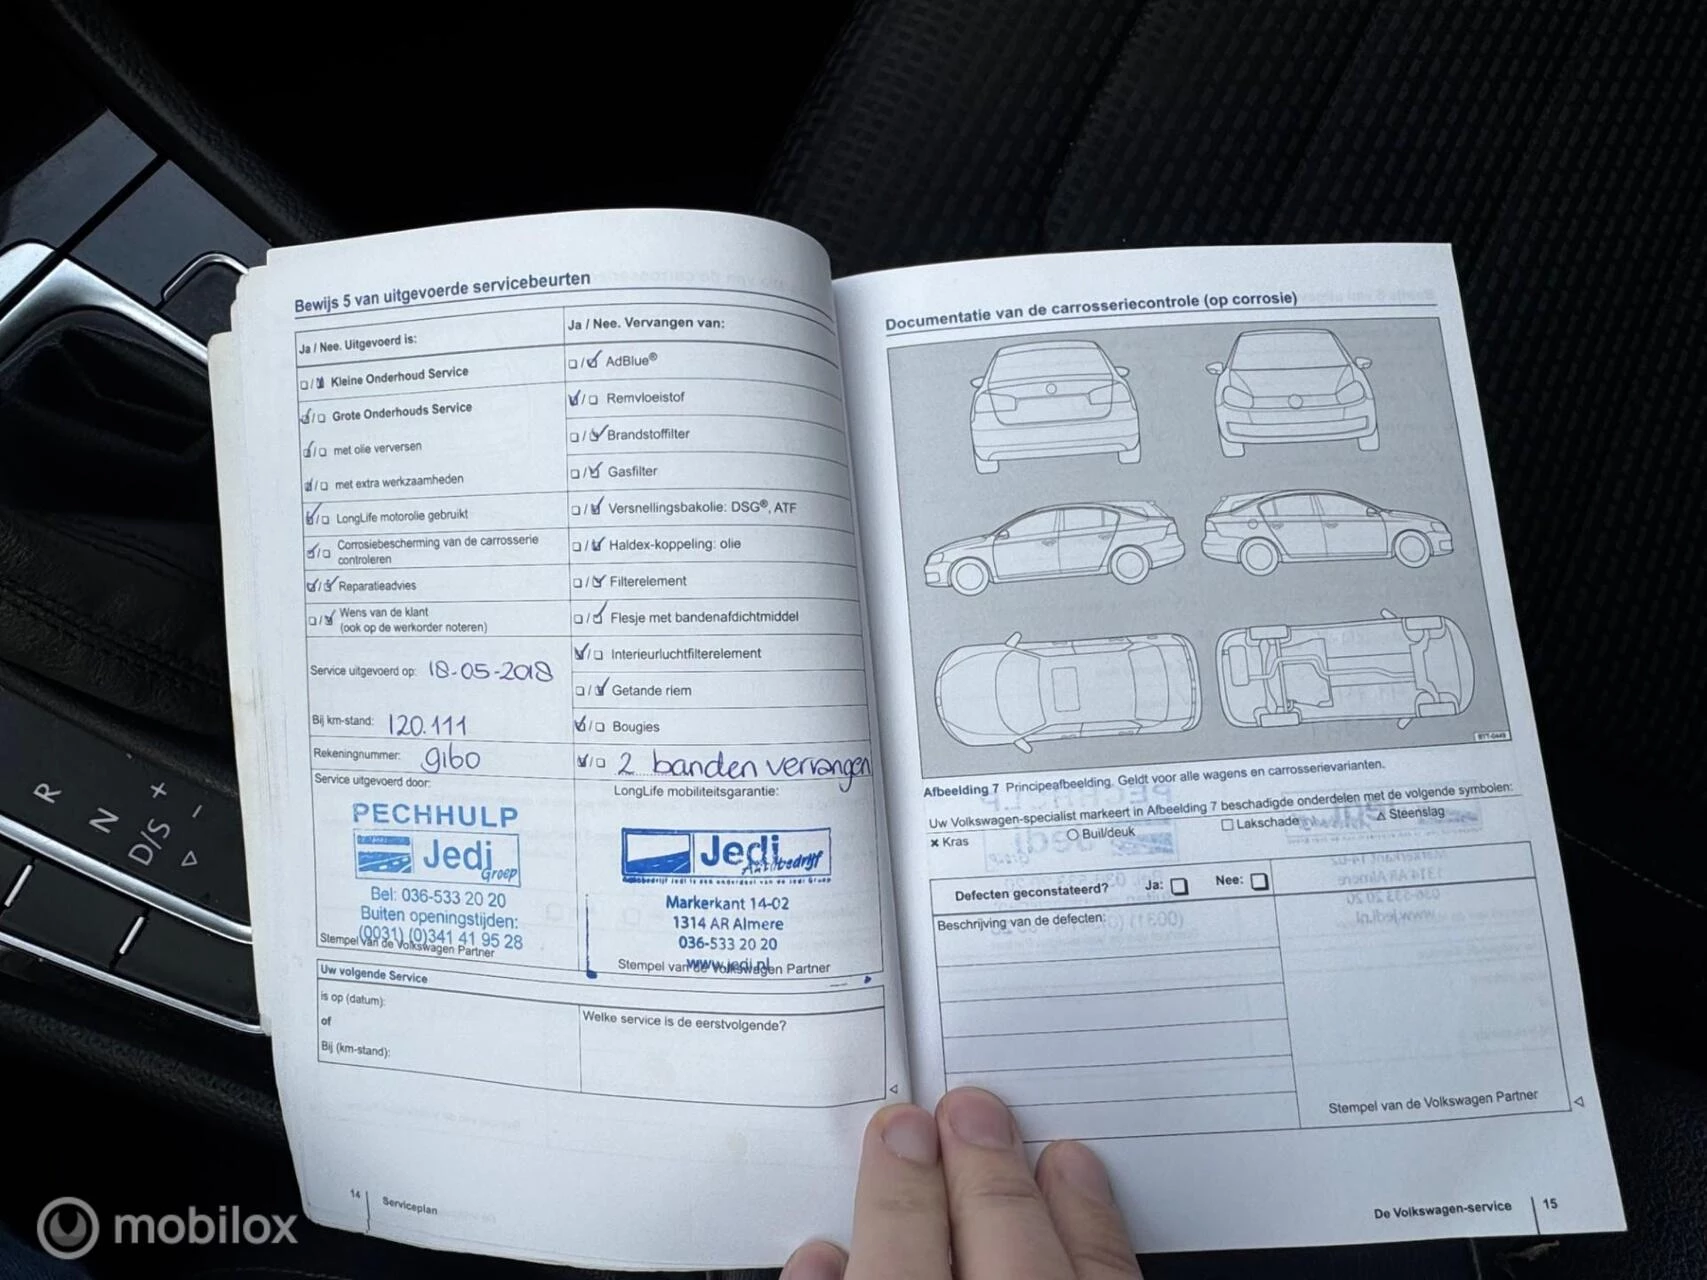 Bewijs 5 van uitgevoerde servicebeurten
Ja / Nee. Uitgevoerd is:
Kleine Onderhoud Service
Grote Onderhouds Service
met olie verversen
met extra werkzaamheden
LongLife motorolie gebruikt
Corrosiebescherming van de carrosserie
controleren
Reparatieadvies
Wens van de klant
(ook op de werkorder noteren)
Service uitgevoerd op: 18-05-2018
Bij km-stand: 120.111
Rekeningnummer: 9160
Service uitgevoerd door:
PECHHULP
Jedi
Groep
Bel: 036-533 20 20
Buiten openingstijden:
(0031) (0)341 41 95 28
Stempel van de Volkswagen Partner
Ja / Nee. Vervangen van:
AdBlue®
Remvloeistof
Brandstoffilter
Gasfilter
Versnellingsbakolie: DSG®, ATF
Haldex-koppeling: olie
Filterelement
Flesje met bandenafdichtmiddel
Interieurluchtfilterelement
Getande riem
Bougies
2 banden vervangen
LongLife mobiliteitsgarantie:
Jedi
Autobedrijf
Markerkant 14-02
1314 AR Almere
036-533 20 20
www.jedi.nl
Stempel van de Volkswagen Partner
Uw volgende Service
is op (datum):
of
Bij (km-stand):
Welke service is de eerstvolgende?
14
Serviceplan
Documentatie van de carrosseriecontrole (op corrosie)
Afbeelding 7 Principeafbeelding. Geldt voor alle wagens en carrosserievarianten.
Uw Volkswagen-specialist markeert in Afbeelding 7 beschadigde onderdelen met de volgende symbolen:
× Kras ○ Buil/deuk □ Lakschade △ Steenslag
Defecten geconstateerd? Ja: Nee:
Beschrijving van de defecten:
Stempel van de Volkswagen Partner
De Volkswagen-service 15
R
N
D/S
+
-
mobilox